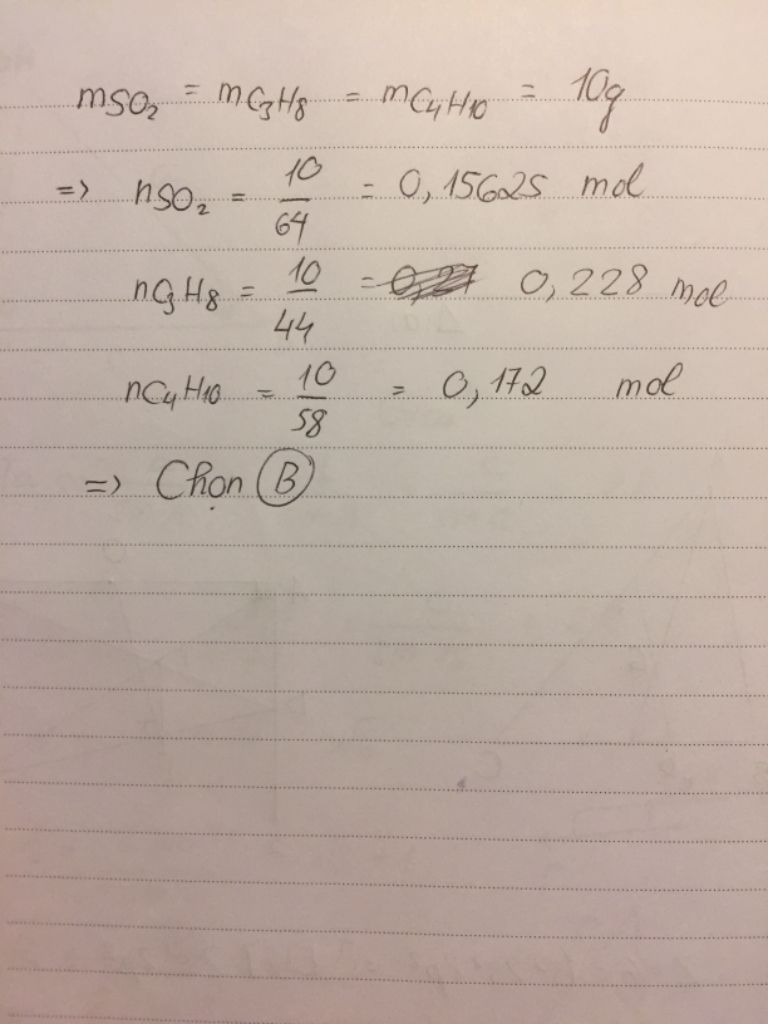 mSO₂ = mC₃H₈ = mC₄H₁₀ = 10g
=> nSO₂ = 10/64 = 0,15625 mol
nC₃H₈ = 10/44 = 0,228 mol
nC₄H₁₀ = 10/58 = 0,172 mol
=> Chọn B